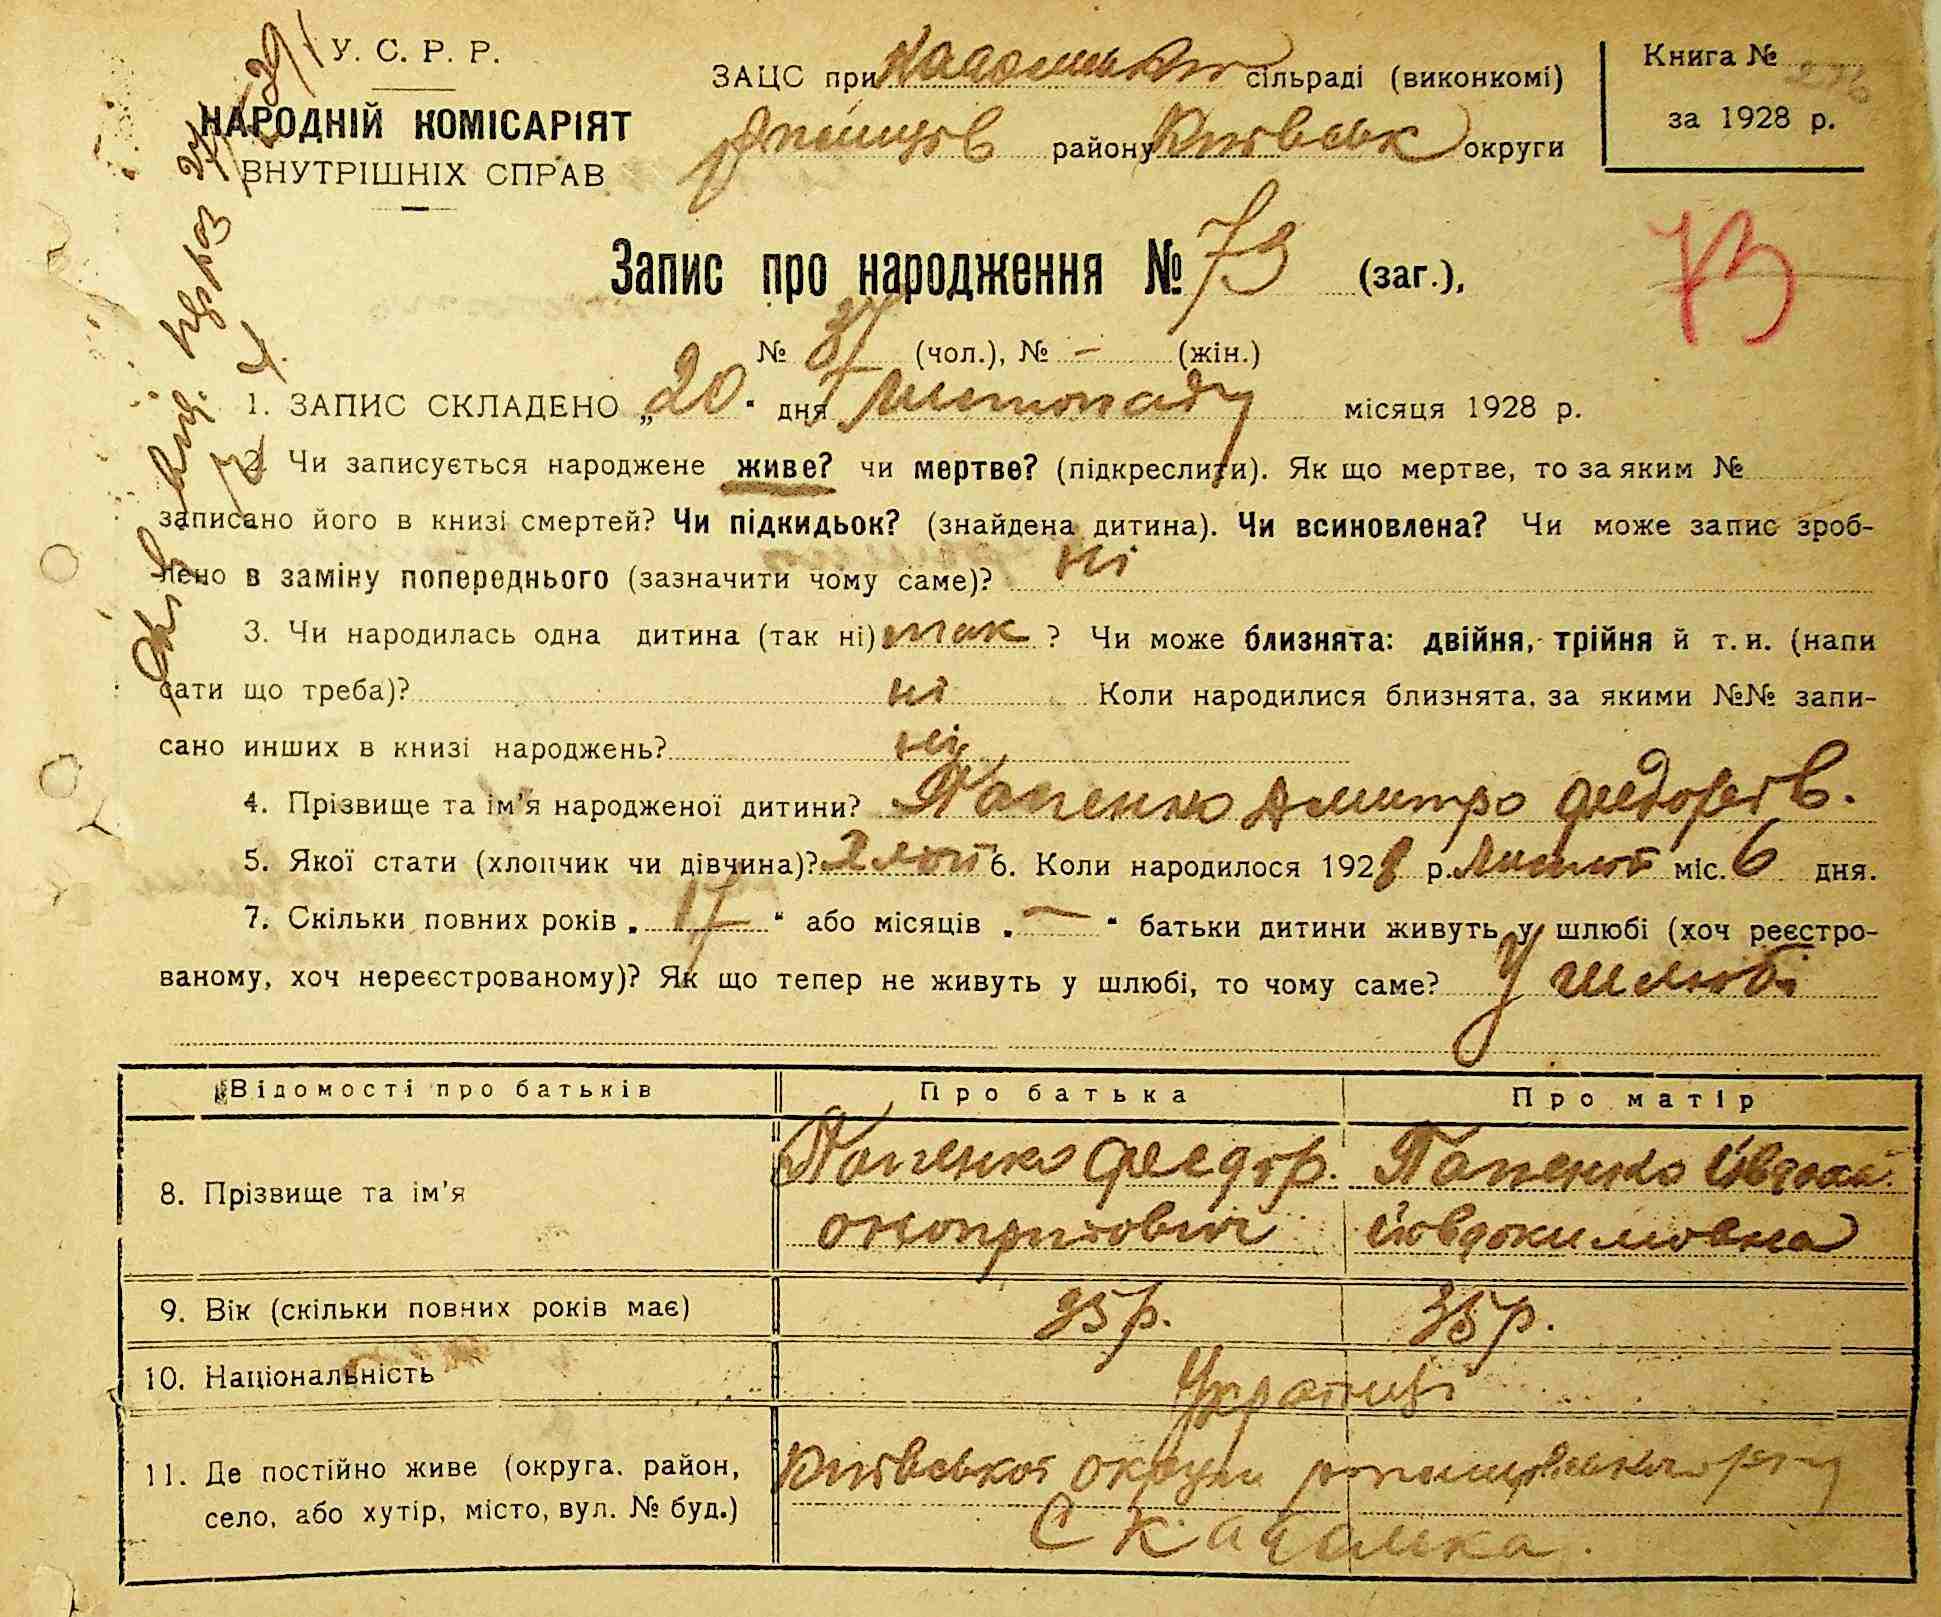 У. С. Р. Р.
НАРОДНІЙ КОМІСАРІЯТ
ВНУТРІШНІХ СПРАВ
ЗАЦС при сільраді (виконкомі)
району Київськ округи
Книга №
за 1928 р.
Запис про народження № 73 (заг.),
73
№ 37 (чол.), № – (жін.)
1. ЗАПИС СКЛАДЕНО „20" дня листопаду місяця 1928 р.
2. Чи записується народжене живе? чи мертве? (підкреслити). Як що мертве, то за яким №
записано його в книзі смертей? Чи підкидьок? (знайдена дитина). Чи всиновлена? Чи може запис зроб-
лено в заміну попереднього (зазначити чому саме)? ні
3. Чи народилась одна дитина (так ні) так ? Чи може близнята: двійня, трійня й т. и. (напи
сати що треба)? ні Коли народилися близнята, за якими №№ запи-
сано инших в книзі народжень? ні
4. Прізвище та ім'я народженої дитини? Папенко Дмитро Федорів.
5. Якої стати (хлопчик чи дівчина)? хлоп 6. Коли народилося 1928 р. міс. 6 дня.
7. Скільки повних років „17" або місяців „–" батьки дитини живуть у шлюбі (хоч реєстро-
ваному, хоч нереєстрованому)? Як що тепер не живуть у шлюбі, то чому саме? У шлюбі
Відомості про батьків Про батька Про матір
8. Прізвище та ім'я
Папенко Федір.
Папенко
9. Вік (скільки повних років має) 35 р. 35 р.
10. Національність Українці
11. Де постійно живе (округа, район,
село, або хутір, місто, вул. № буд.)
Київської округи
С